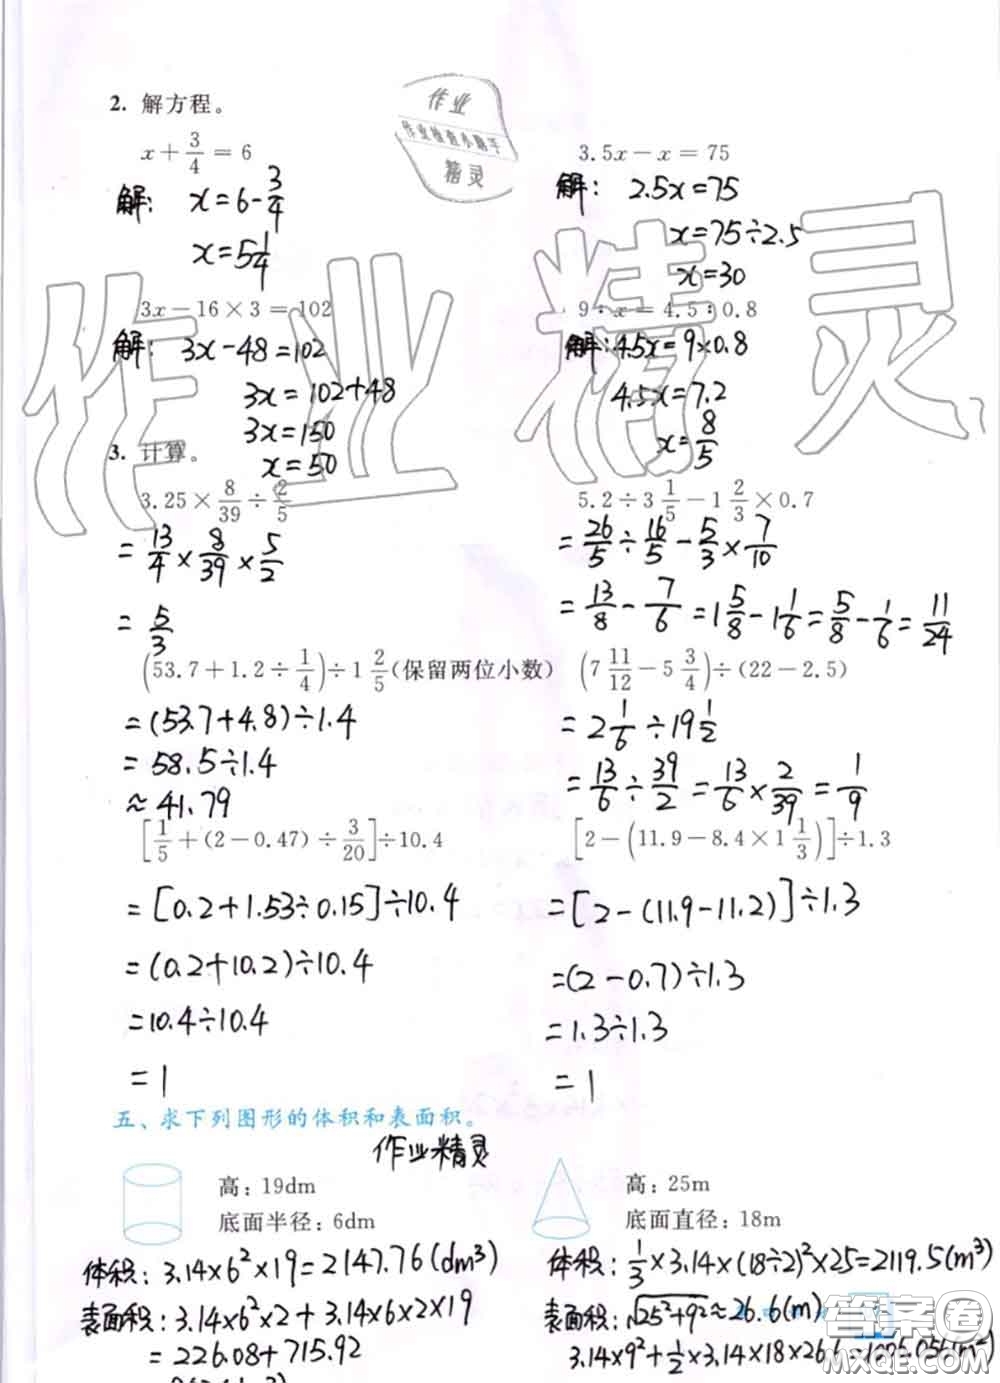 作业
作业检查小助手
精灵
2. 解方程。
x + 3/4 = 6
解: x = 6 - 3/4
x = 5 1/4
3.5x - x = 75
解: 2.5x = 75
x = 75÷2.5
x = 30
3x - 16×3 = 102
解: 3x - 48 = 102
3x = 102+48
3x = 150
x = 50
9 : x = 4.5 : 0.8
解: 4.5x = 9×0.8
4.5x = 7.2
x = 8/5
作业精灵
3. 计算。
3.25 × 8/39 ÷ 2/5
= 13/4 × 8/39 × 5/2
= 5/3
5.2 ÷ 3 1/5 - 1 2/3 × 0.7
= 26/5 ÷ 16/5 - 5/3 × 7/10
= 13/8 - 7/6 = 1 5/8 - 1 1/6 = 5/8 - 1/6 = 11/24
(53.7 + 1.2 ÷ 1/4) ÷ 1 2/5 (保留两位小数)
= (53.7+4.8)÷1.4
= 58.5÷1.4
≈ 41.79
(7 11/12 - 5 3/4) ÷ (22 - 2.5)
= 2 1/6 ÷ 19 1/2
= 13/6 ÷ 39/2 = 13/6 × 2/39 = 1/9
[1/5 + (2 - 0.47) ÷ 3/20] ÷ 10.4
= [0.2+1.53÷0.15]÷10.4
= (0.2+10.2)÷10.4
= 10.4÷10.4
= 1
[2 - (11.9 - 8.4 × 1 1/3)] ÷ 1.3
= [2-(11.9-11.2)]÷1.3
= (2-0.7)÷1.3
= 1.3÷1.3
= 1
五、求下列图形的体积和表面积。
作业精灵
高: 19dm
底面半径: 6dm
体积: 3.14×6²×19 = 2147.76(dm³)
表面积: 3.14×6²×2 + 3.14×6×2×19
= 226.08+715.92
高: 25m
底面直径: 18m
体积: 1/3 ×3.14×(18÷2)²×25 = 2119.5(m³)
表面积: √25²+9² ≈ 26.6(m)
3.14×9² + 1/2 ×3.14×18×26.6
答案圈
MXQE.COM